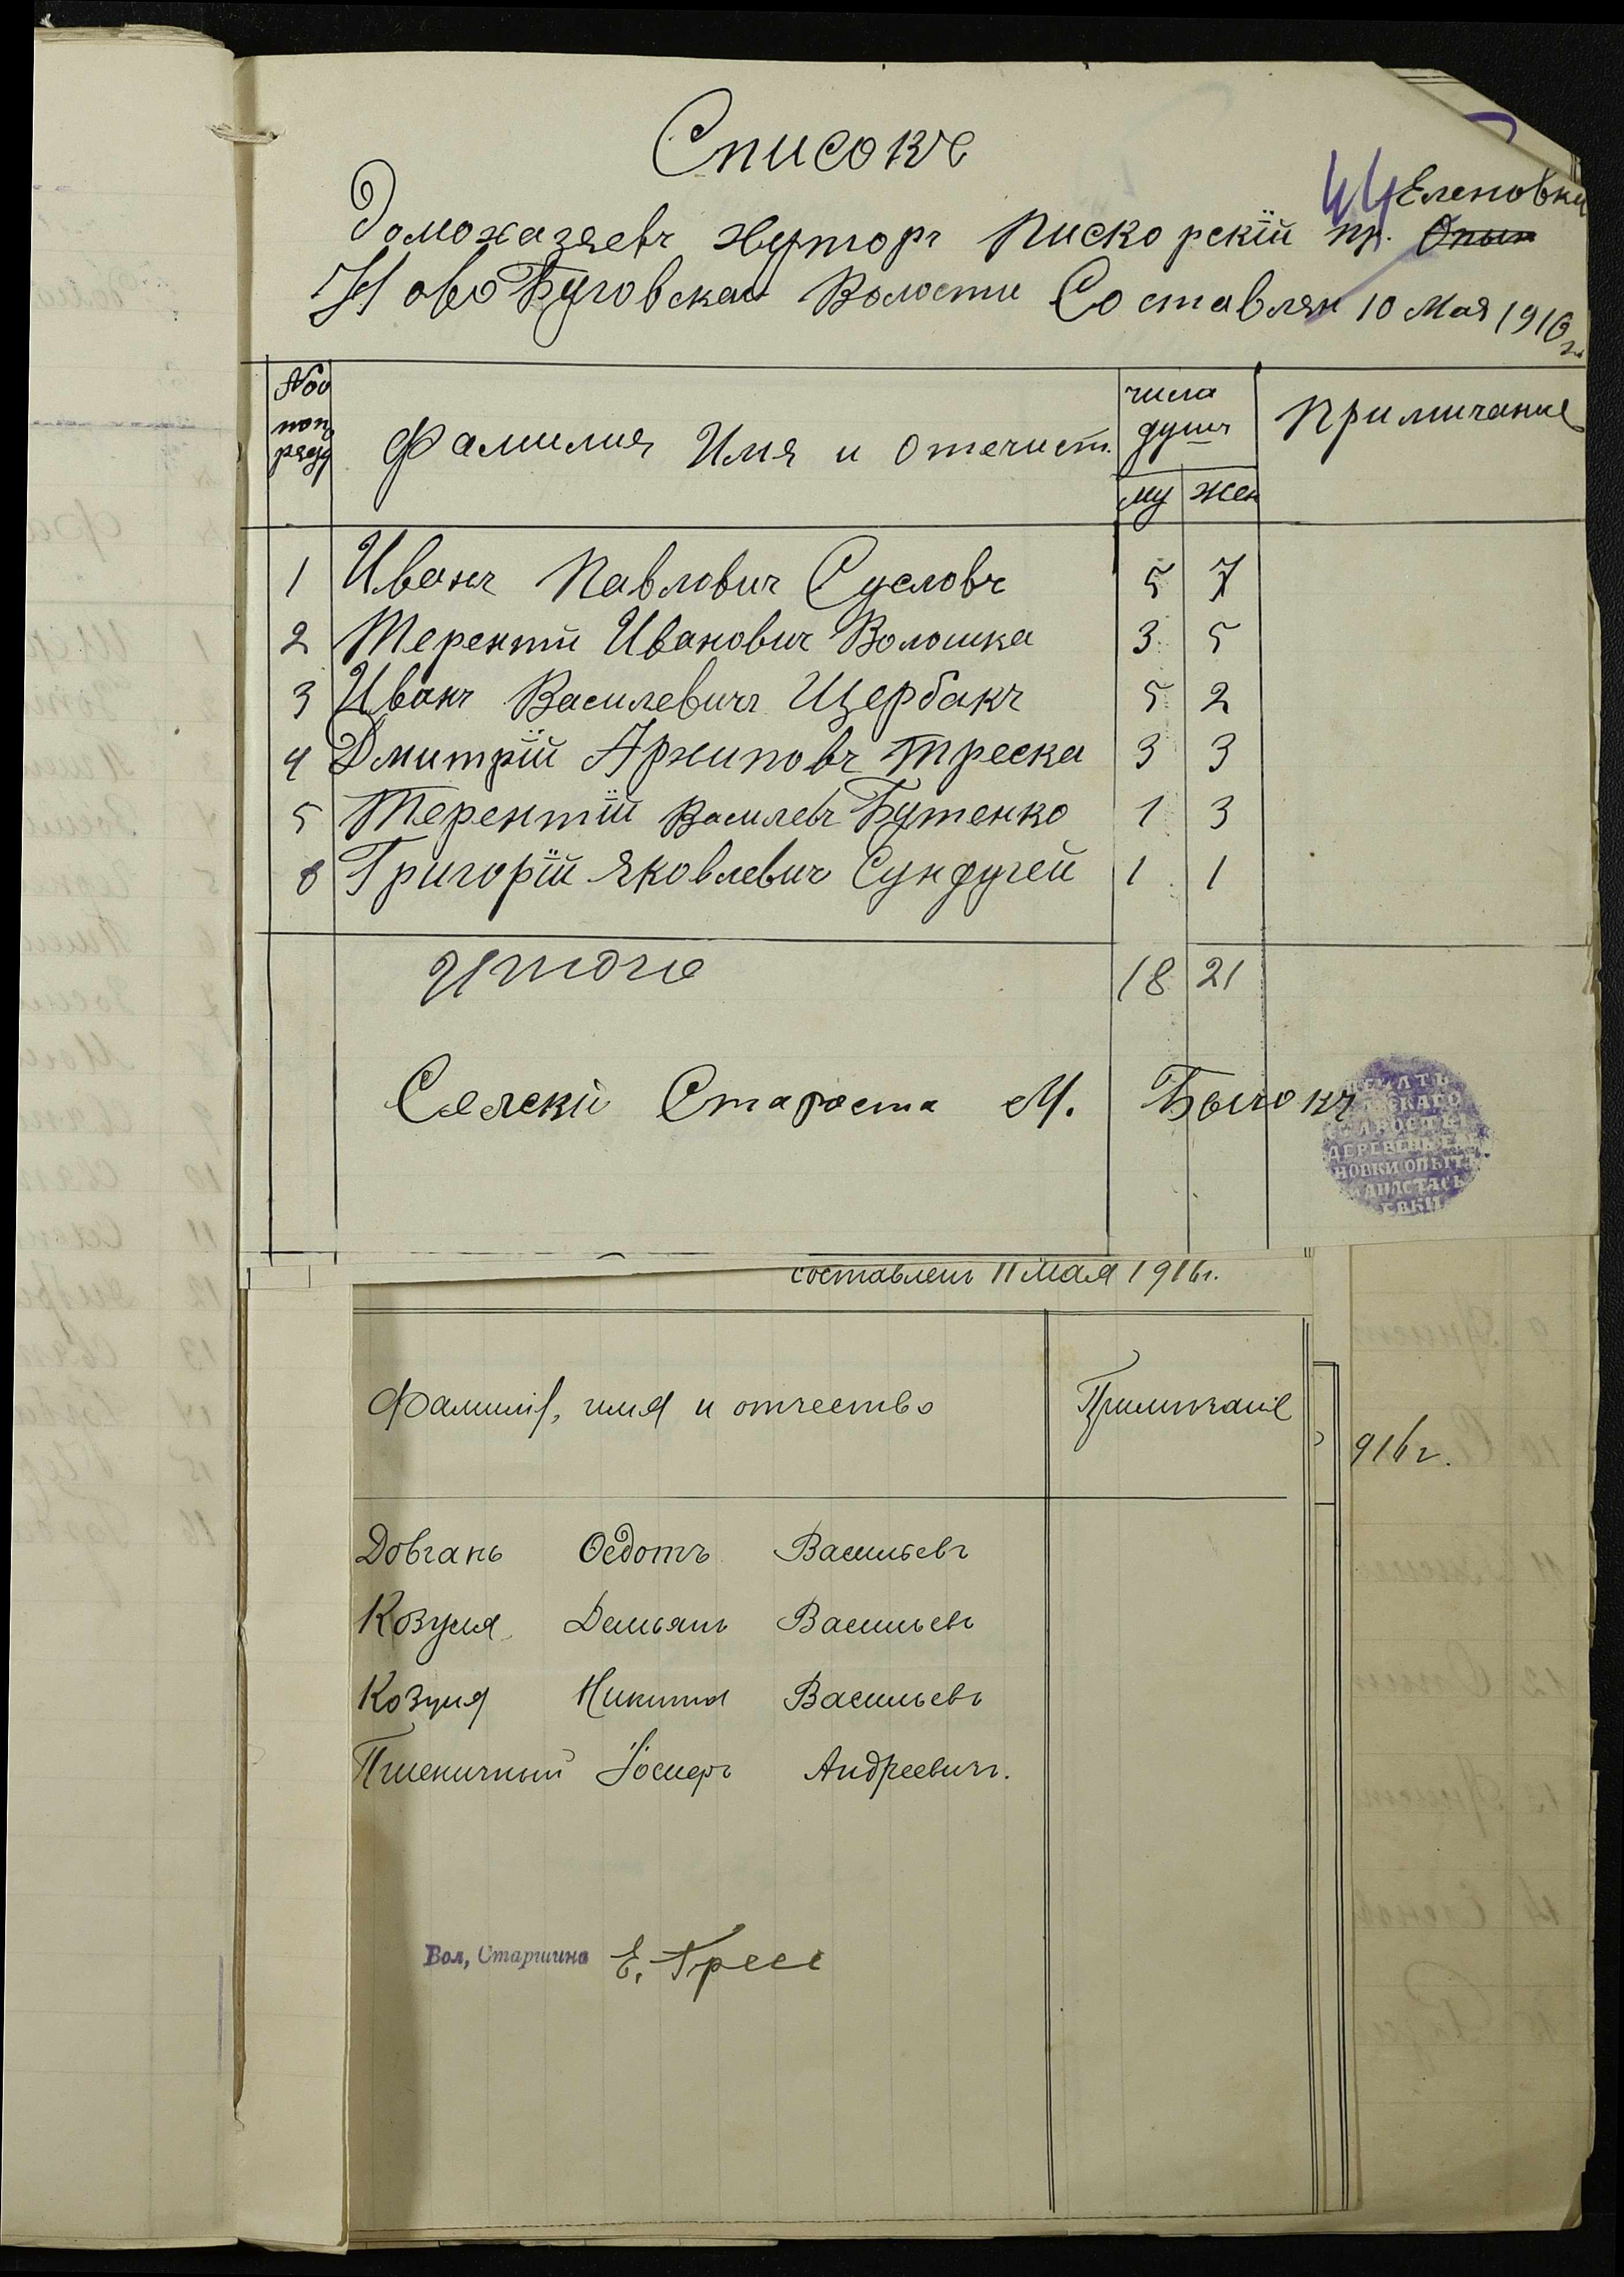 Списокъ
Еленовки
Домохазяевъ Хуторъ Пискорскій пр. Опыт
Ново Буговская Волости Составлян 10 Мая 1916 г.
№оо числа
поп Фамилия Имя и Отечист. душъ Примичание
ряду
му жен
1 Иванъ Павловичъ Сусловъ 5 7
2 Терентій Ивановичъ Волошка 3 5
3 Иванъ Василевичъ Щербакъ 5 2
4 Дмитрій Архиповъ Треска 3 3
5 Терентій Василевъ Бутенко 1 3
6 Григорій Яковлевичъ Сундугей 1 1
Итого 18 21
Селскій Староста М. Бычокъ
ПЕЧАТЬ
СЕЛЬСКАГО
СТАРОСТЫ
ДЕРЕВЕНЬ ЕЛЕ
НОВКИ ОПЫТ
И АНАСТАСЬ
ЕВКИ
составленъ 11 мая 1916 г.
Фамилія, имя и отчество Примѣчаніе
916 г.
Довгань Ѳедотъ Васильевъ
Козуля Демьянъ Васильевъ
Козуля Никита Васильевъ
Пшеничный Іосифъ Андреевичъ.
Вол, Старшина Е. Гресс